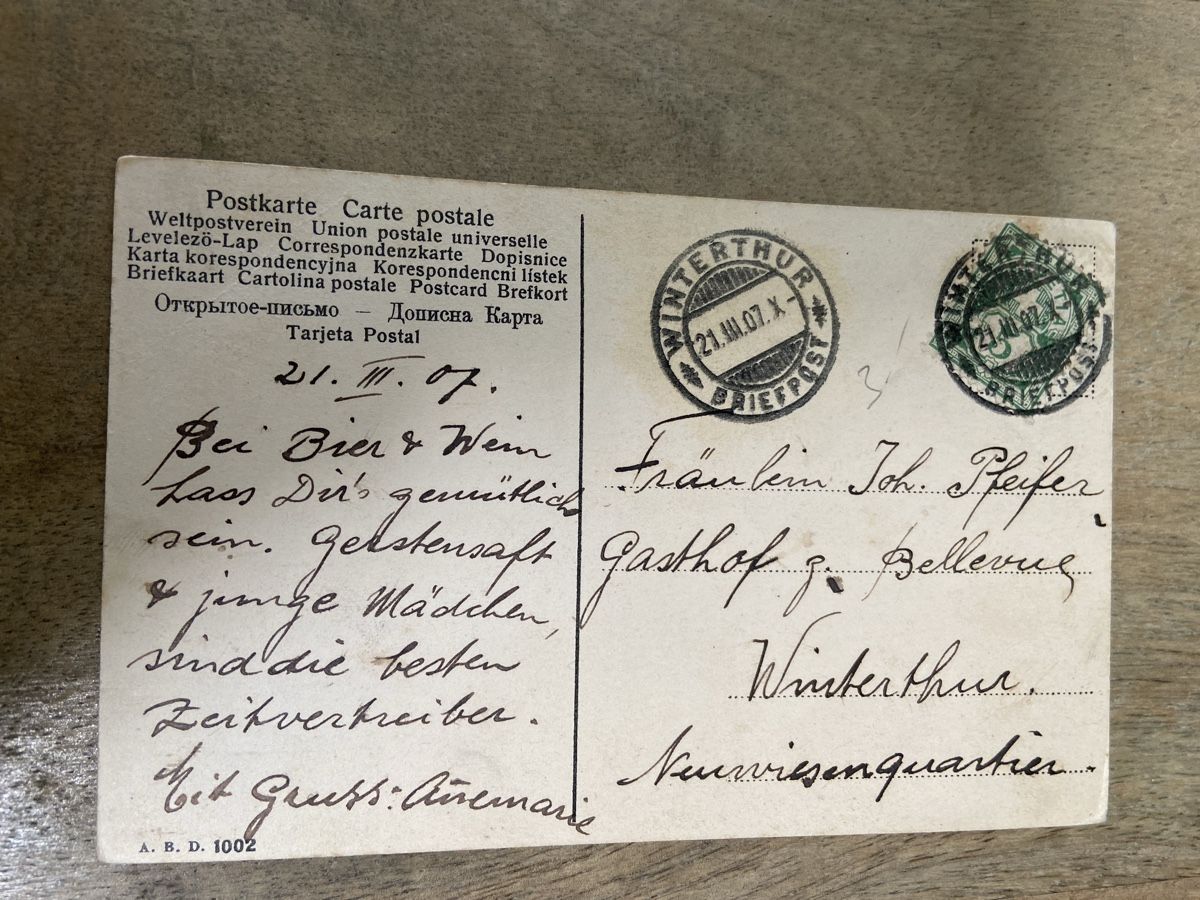 Postkarte Carte postale
Weltpostverein Union postale universelle
Levelezö-Lap Correspondenzkarte Dopisnice
Karta korespondencyjna Korespondencni lístek
Briefkaart Cartolina postale Postcard Brefkort
Открытое-письмо — Дописна Карта
Tarjeta Postal
21. III. 07.
Bei Bier & Wein
Lass Dir's gemütlich
sein. Gerstensaft
& junge Mädchen,
sind die besten
Zeitvertreiber.
Mit Gruss: Anemarie
A. B. D. 1002
WINTERTHUR
21.III.07.X-
BRIEFPOST
WINTERTHUR
21.III.07.X-
BRIEFPOST
5
3
Fräulein Joh. Pfeifer
Gasthof z. Bellevue
Winterthur.
Neuwiesenquartier.